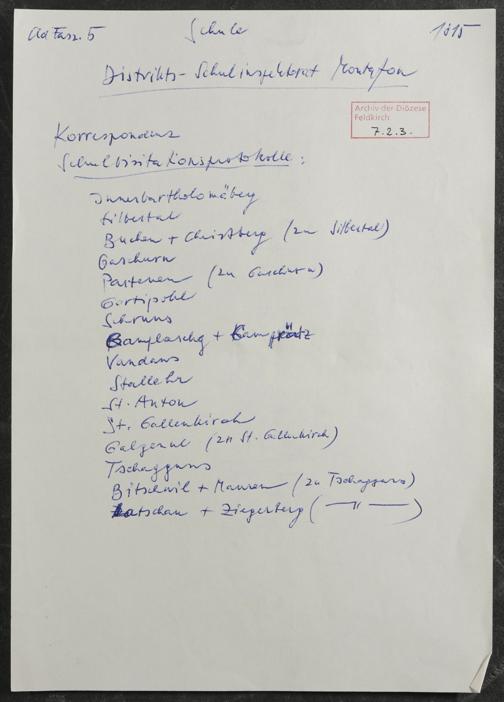 Ad Fasz. 5 Schule 1815
Distrikts-Schulinspektorat Montafon
Archiv der Diözese
Feldkirch
7.2.3.
Korrespondenz
Schulvisitationsprotokolle:
Innerbartholomäberg
Silbertal
Buchen + Christberg (zu Silbertal)
Gaschurn
Partenen (zu Gaschurn)
Gortipohl
Schruns
Gamplaschg + Gamprätz
Vandans
Stallehr
St. Anton
St. Gallenkirch
Galgenul (zu St. Gallenkirch)
Tschagguns
Bitschweil + Mauren (zu Tschagguns)
Latschau + Ziegerberg (—"—)